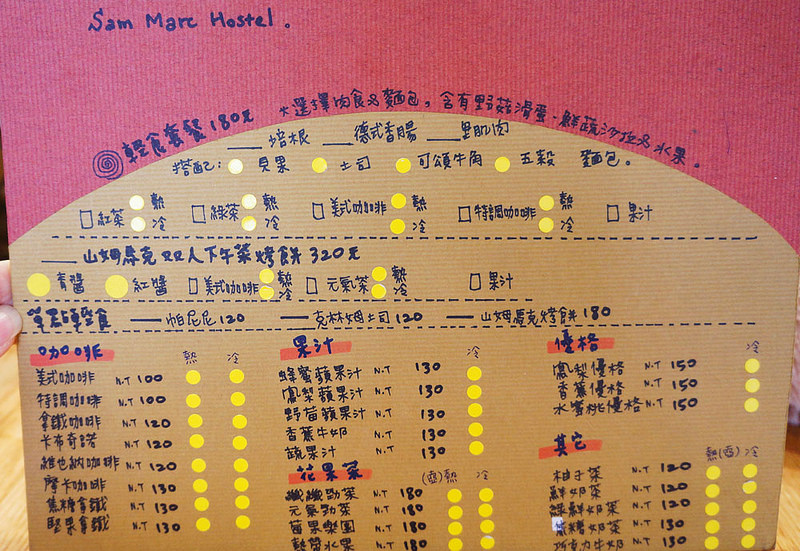 Sam Marc Hostel。
輕食套餐180元 *選擇肉食&麵包，含有野菇滑蛋、鮮蔬沙拉&水果。
__培根 __德式香腸 __里肌肉
搭配: 貝果 土司 可頌牛角 五穀 麵包。
□紅茶 熱 冷 □綠茶 熱 冷 □美式咖啡 熱 冷 □特調咖啡 熱 冷 □果汁
__山姆馬克双人下午茶烤餅320元
青醬 紅醬 □美式咖啡 熱 冷 □元氣茶 熱 冷 □果汁
單點輕食 —帕尼尼120 —克林姆土司120 —山姆馬克烤餅180
咖啡 熱 冷
美式咖啡 N.T 100
特調咖啡 N.T 100
拿鐵咖啡 N.T 120
卡布奇諾 N.T 120
維也納咖啡 N.T 120
摩卡咖啡 N.T 130
焦糖拿鐵 N.T 130
堅果拿鐵 N.T 130
果汁 冷
蜂蜜蘋果汁 N.T 130
鳳梨蘋果汁 N.T 130
野莓蘋果汁 N.T 130
香蕉牛奶 N.T 130
蔬果汁 N.T 130
花果茶 (壺)熱 冷
纖纖動茶 N.T 180
元氣動茶 N.T 180
莓果樂園 N.T 180
熱帶水果 N.T 180
優格 冷
鳳梨優格 N.T 150
香蕉優格 N.T 150
水蜜桃優格 N.T 150
其它 熱(壺) 冷
柚子茶 N.T 120
鮮奶茶 N.T 120
鮮奶茶 N.T 120
糖奶茶 N.T 130
巧克力牛奶 N.T 130